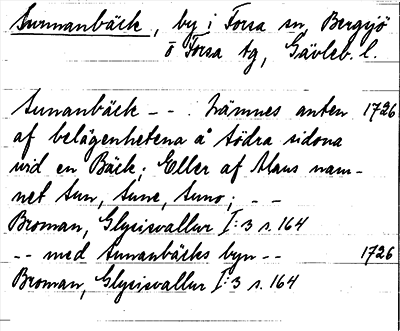 Sunnanbäck, by i Forsa sn, Bergsjö
o Forsa tg, Gävleb. l.
Sunanbäck - - . Nämnes anten 1726
af belägenhetena å södra sidona
wid en Bäck; Eller af Mans nam-
net Sun, Sune, Suno; - -
Broman, Glysisvallur I:3 s. 164
-- med Sunanbäcks byn -- 1726
Broman, Glysisvallur I:3 s. 164